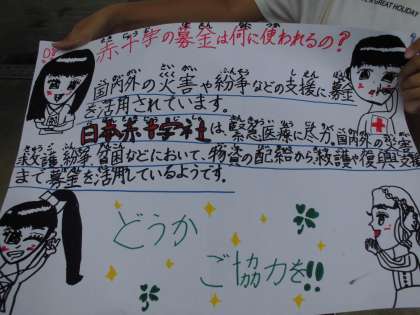 赤十字の募金は何に使われるの？
国内外の災害や紛事などの支援に募金
を活用されています。
日本赤十字社は、緊急医療に尽力。国内外の災害
救護、紛事、貧困などにおいて、物資の配給から救護や復興支援
まで募金を活用しているようです。
どうか
ご協力を!!